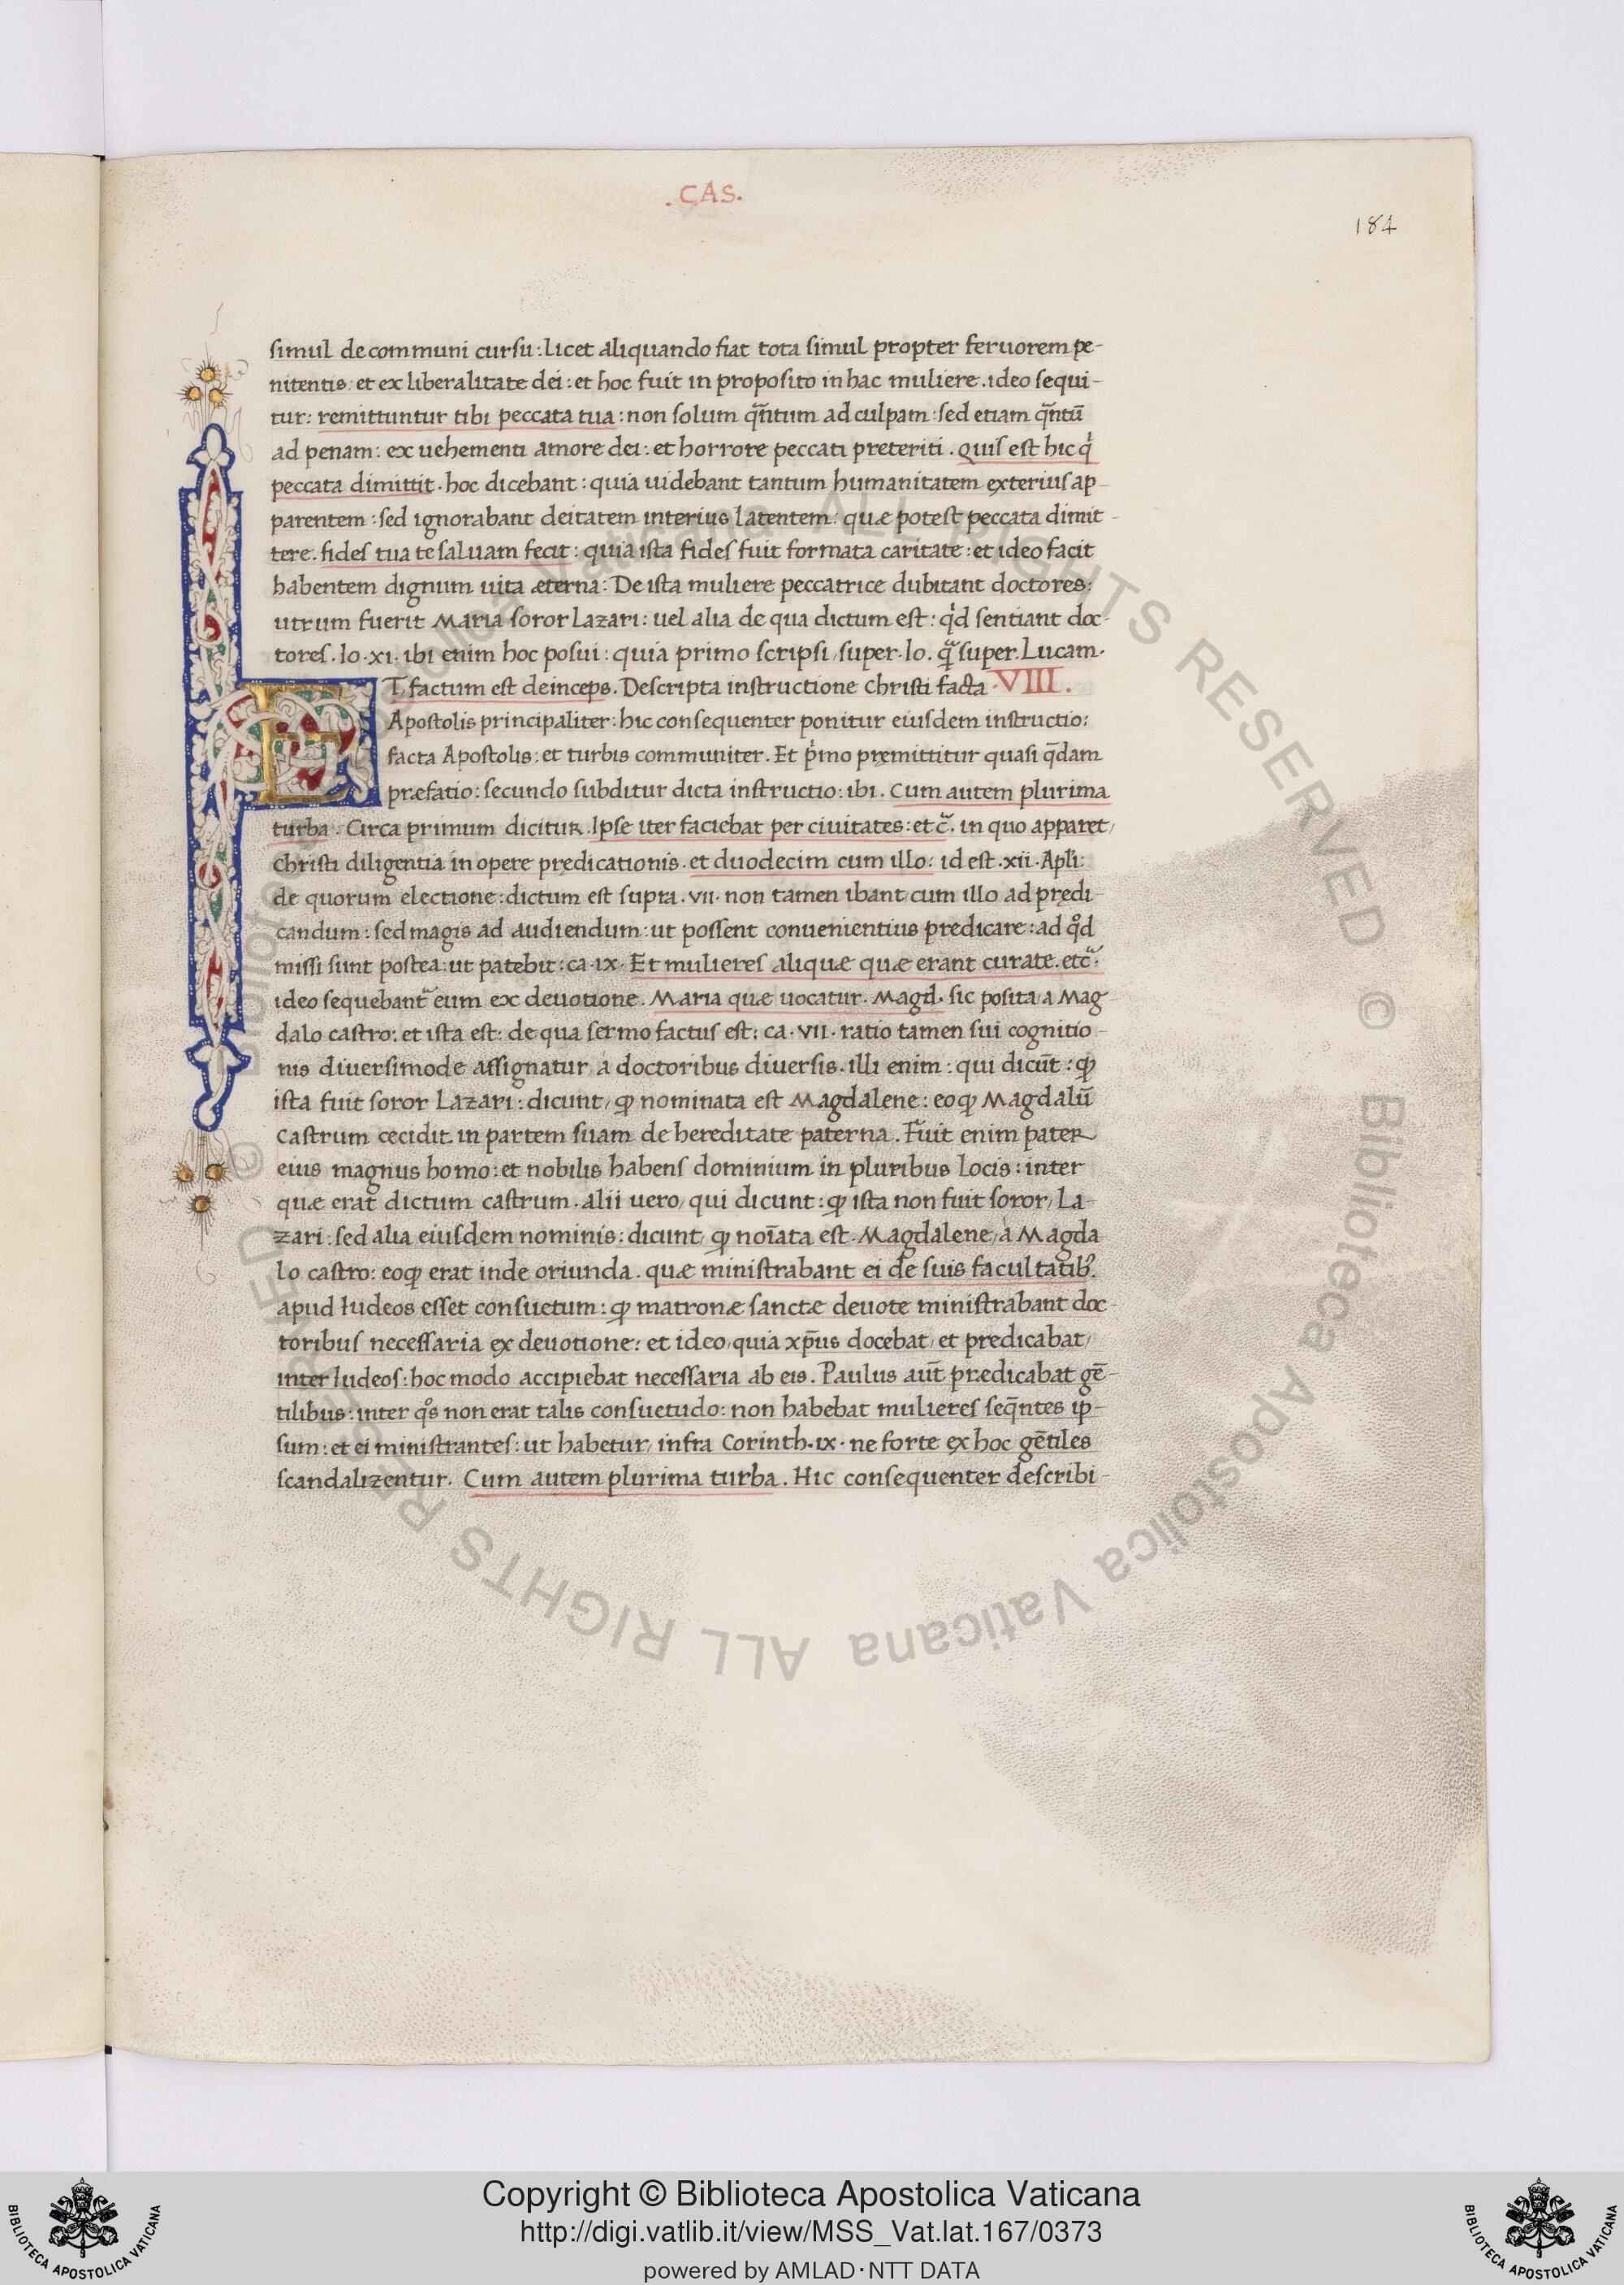 .CAS.
184
simul de communi cursu: licet aliquando fiat tota simul propter feruorem pe-
nitentis: et ex liberalitate dei: et hoc fuit in proposito in hac muliere. ideo sequi-
tur: remittuntur tibi peccata tua: non solum q̃ntum ad culpam: sed etiam q̃ntũ
ad penam: ex uehementi amore dei: et horrore peccati preteriti. Quis est hic qͥ
peccata dimittit. hoc dicebant: quia uidebant tantum humanitatem exterius ap-
parentem: sed ignorabant deitatem interius latentem: quæ potest peccata dimit-
tere. fides tua te saluam fecit: quia ista fides fuit formata caritate: et ideo facit
habentem dignum uita æterna: De ista muliere peccatrice dubitant doctores:
utrum fuerit Maria soror Lazari: uel alia de qua dictum est: qͥd sentiant doc-
tores. Io. xi. ibi enim hoc posui: quia primo scripsi super. Io. q̃ super. Lucam.
ET factum est deinceps. Descripta instructione Christi facta. VIII.
Apostolis principaliter: hic consequenter ponitur eiusdem instructio:
facta Apostolis: et turbis communiter. Et pͥmo pręmittitur quasi q̄dam
præfatio: secundo subditur dicta instructio: ibi. Cum autem plurima
turba. Circa primum dicitur. Ipse iter faciebat per ciuitates: et c̃. in quo apparet,
Christi diligentia in opere predicationis. et duodecim cum illo: id est. xii. Apl̃i:
de quorum electione: dictum est supra. vii. non tamen ibant cum illo ad prędi-
candum: sed magis ad audiendum: ut possent conuenientius predicare: ad qͦd
missi sunt postea: ut patebit: ca. ix. Et mulieres aliquæ quæ erant curate. etc̃.
ideo sequebant᷑ eum ex deuotione. Maria quæ uocatur. Magd. sic posita a Mag-
dalo castro: et ista est: de qua sermo factus est: ca. vii. ratio tamen sui cognitio-
nis diuersimode assignatur a doctoribus diuersis. illi enim: qui dicũt: ꝙ
ista fuit soror Lazari: dicunt, ꝙ nominata est Magdalene: eo ꝙ Magdalũ
Castrum cecidit in partem suam de hereditate paterna. Fuit enim pater
eius magnus homo: et nobilis habens dominium in pluribus locis: inter
quæ erat dictum castrum. alii uero, qui dicunt: ꝙ ista non fuit soror, La-
zari: sed alia eiusdem nominis: dicunt, ꝙ noĩata est. Magdalene, a Magda
lo castro: eo ꝙ erat inde oriunda. quæ ministrabant ei de suis facultatibꝰ.
apud Iudeos esset consuetum: ꝙ matronæ sanctæ deuote ministrabant doc-
toribus necessaria ex deuotione: et ideo, quia xp̃us docebat, et predicabat,
inter Iudeos: hoc modo accipiebat necessaria ab eis. Paulus aũt prædicabat gē-
tilibus: inter qͦs non erat talis consuetudo: non habebat mulieres seq̄ntes ip-
sum: et ei ministrantes: ut habetur, infra Corinth. ix. ne forte ex hoc gētiles
scandalizentur. Cum autem plurima turba. Hic consequenter describi-
© Biblioteca Apostolica Vaticana ALL RIGHTS RESERVED © Biblioteca Apostolica Vaticana ALL RIGHTS RESERVED
BIBLIOTECA APOSTOLICA VATICANA
Copyright © Biblioteca Apostolica Vaticana
http://digi.vatlib.it/view/MSS_Vat.lat.167/0373
powered by AMLAD·NTT DATA
BIBLIOTECA APOSTOLICA VATICANA